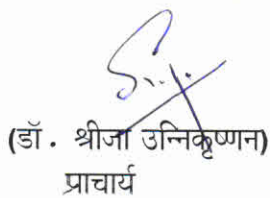 (डॉ. श्रीजा उन्निकृष्णन)
प्राचार्य